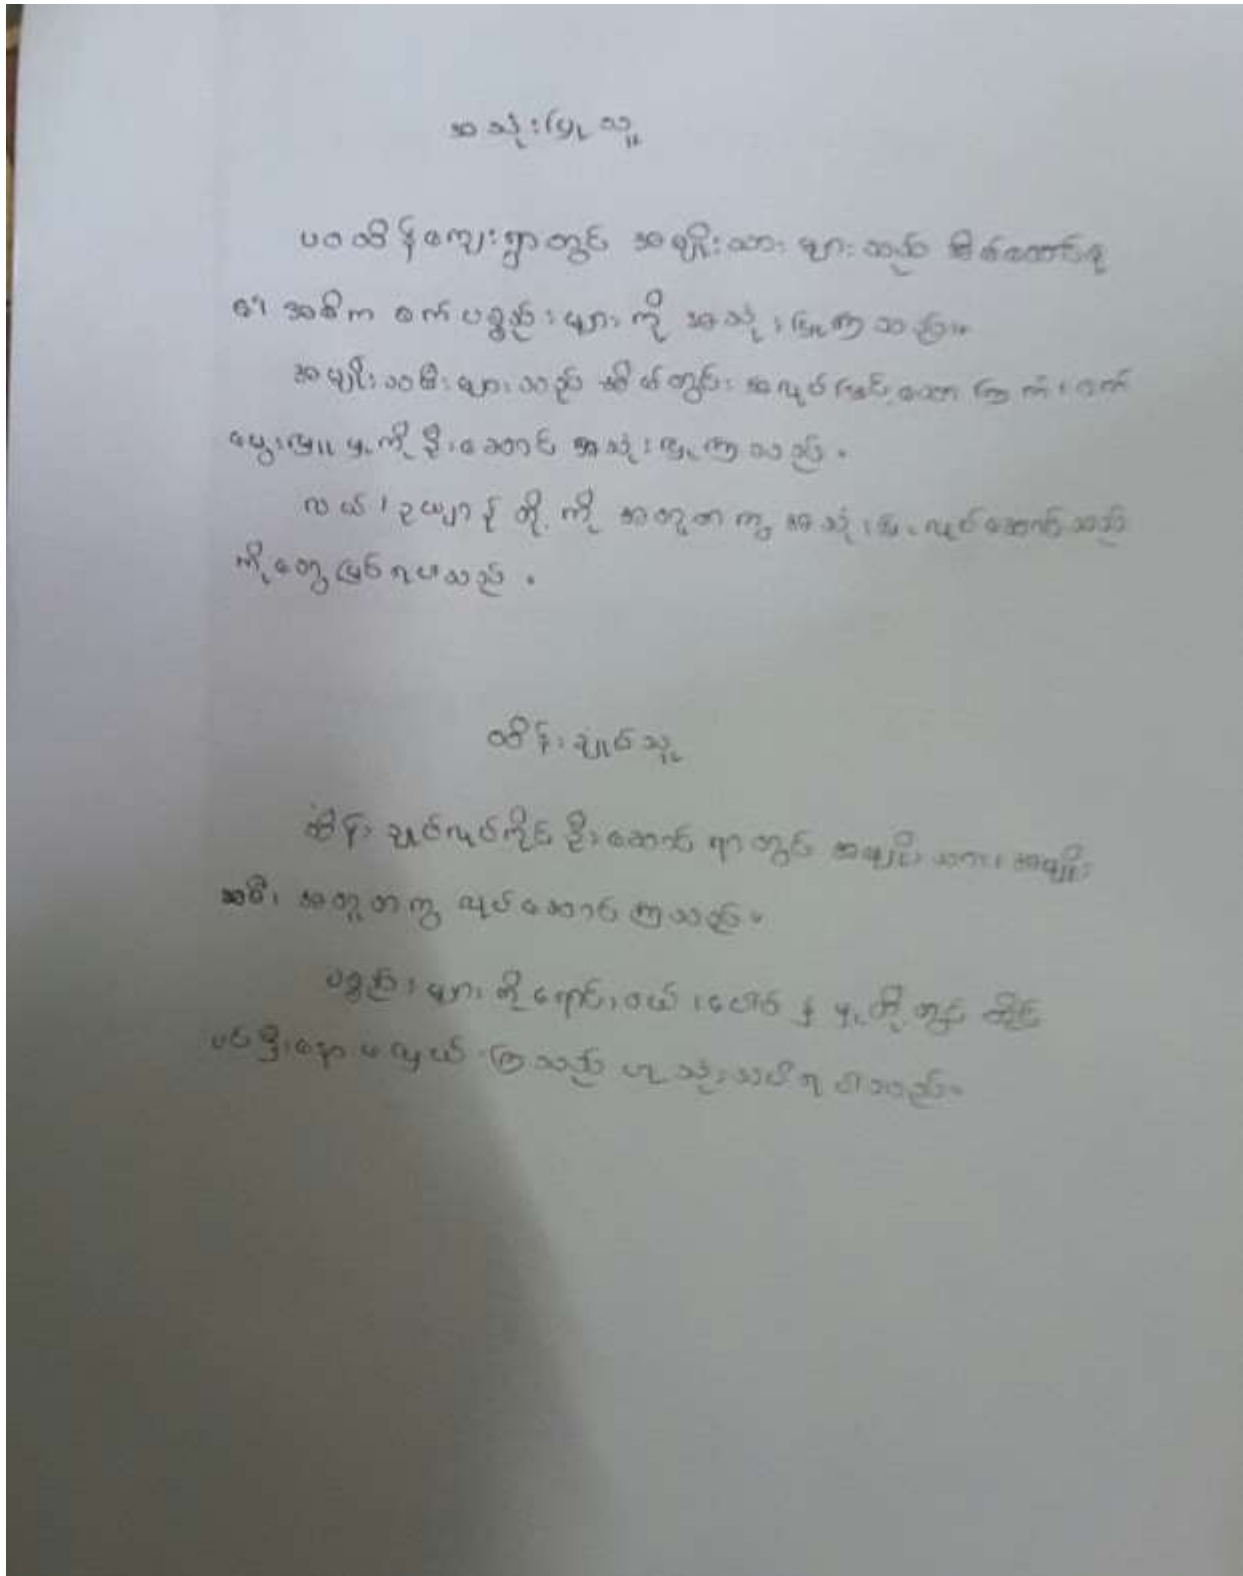 အသုံးပြုသူ
ပထထိန်ကျေးရွာတွင် အမျိုးသားများသည်
အဓိက စက်ပစ္စည်းများကို အသုံးပြုကြသည်။
အမျိုးသမီးများသည် အိမ်တွင်းအလုပ်ဖြင့်သော ကြက်၊ ဝက်
မွေးမြူမှုကိုဦးဆောင် အသုံးပြုကြသည်။
လယ်၊ ဥယျာဉ်တို့ကို အတူတကွ အသုံးပြု လုပ်ဆောင်သည်
ကိုတွေ့မြင်ရပါသည်။
ထိန်းချုပ်သူ
ထိန်းချုပ်လုပ်ကိုင်ဦးဆောင်ရာတွင် အမျိုးသား၊ အမျိုး
သမီး အတူတကွ လုပ်ဆောင်ကြသည်။
ပစ္စည်းများကိုရောင်းဝယ်၊ မှုတို့တွင် တိုင်
ပင်ညှိနှိုင်း ကြသည်ဟု သုံးသပ်ရပါသည်။